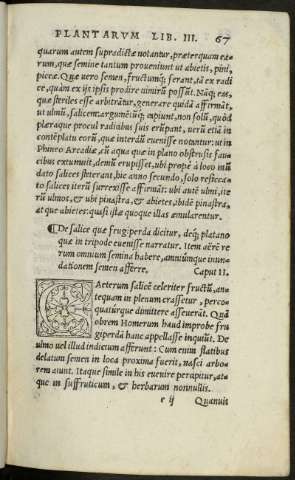 PLANTARVM LIB. III. 67
quarum autem supradictæ notantur, præterquam ex
rum, quæ semine tantum proueniunt ut abietis, pini,
piceæ. Quæ uero semen, fructumq; ferant, tã ex radi
ce, quàm ex ijs ipsis prodire uirũ possũt. Nãq; eas,
quæ steriles esse arbitrãtur, generare quidã affirmãt,
ut ulmũ, salicem: argumẽtũq; capiunt, non solũ, quòd
pleraque procul radicibus suis erũpant, uerũ etiã in
contẽplatu eorũ, quæ interdũ euenisse notantur: ut in
Phuneo Arcadiæ, cũ aqua que in plano obstrusit fau
cibus extumuit, demũ erupisset, ubi propè à loco mũ
dato salices steterant, hic anno secundo, solo resicca
to salices iterũ surrexisse affirmãt: ubi autẽ ulmi, ite
rũ ulmos, & ubi pinastra, & abietes, ibidẽ pinastra,
at que abietes: quasi istæ quoque illas æmularentur.
¶De salice quæ frugiperda dicitur, deq; platano
quæ in tripode euenisse narratur. Item aërẽ re
rum omnium semina habere, amniũmque inun
dationem semen afferre. Caput II.
CAeterum salicẽ celeriter fructũ, ant
tequam in plenum crassetur, perco
quatúrque dimittere asseuerãt. Quã
obrem Homerum haud improbe fru
giperdã hanc appellasse inquiũt. De
ulmo uel illud indicium afferunt: Cum enim flatibus
delatum semen in loca proxima fuerit, nasci arbo
rem aiunt. Itaque simile in his euenire perapitur, at
que in suffruticum, & herbarum nonnullis.
e ij Quanuit